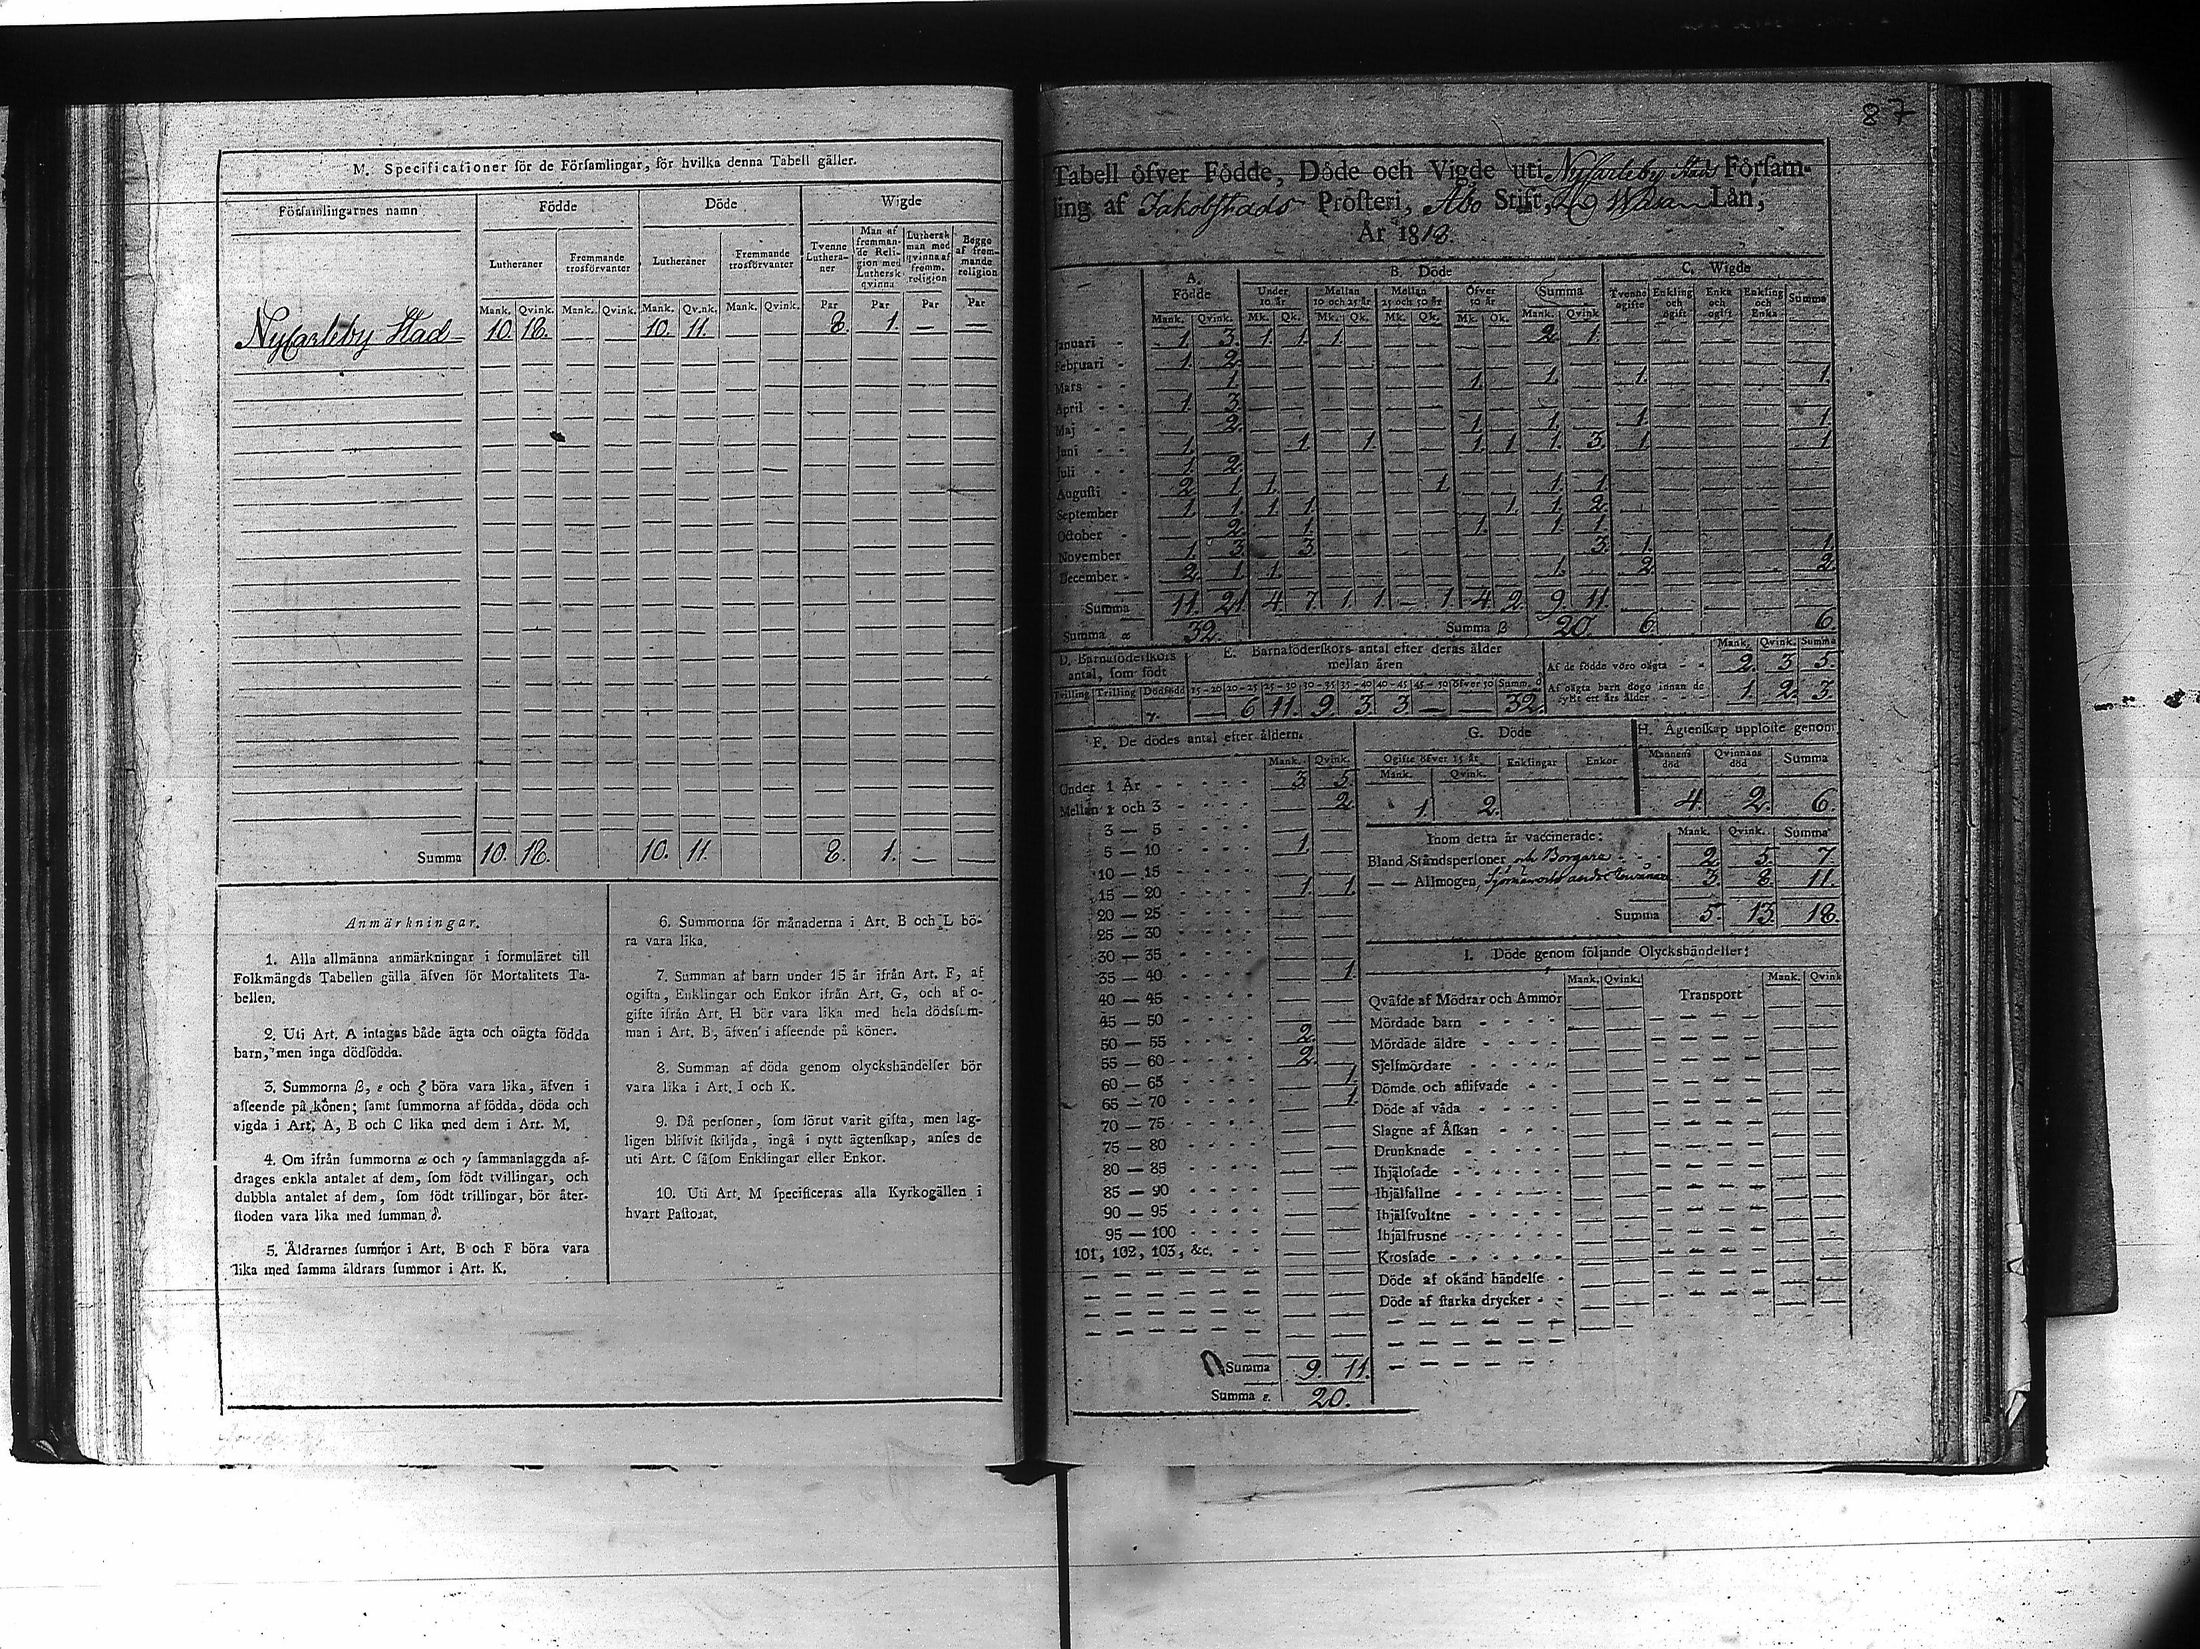 M. Specificationer för de Församlingar, för hvilka denna Tabell gäller.
Församlingarnes namn | Födde | Döde | Wigde
Lutheraner | Fremmande trosförvanter | Lutheraner | Fremmande trosförvanter | Tvenne Lutheraner | Man af fremmande Religion med Luthersk qvinna | Luthersk man med qvinna af fremm. religion | Begge af fremmande religion
Mank. | Qvink. | Mank. | Qvink. | Mank. | Qvink. | Mank. | Qvink. | Par | Par | Par | Par
NyCarleby Stad | 10. | 18. | — | — | 10. | 11. | — | — | 8. | 1. | — | —
Summa | 10. | 18. | 10. | 11. | 8. | 1. | — | —
Anmärkningar.
1. Alla allmänna anmärkningar i formuläret till
Folkmängds Tabellen gälla äfven för Mortalitets Ta-
bellen.
2. Uti Art. A intagas både ägta och oägta födda
barn, men inga dödfödda.
3. Summorna β, ε och ζ böra vara lika, äfven i
afseende på könen; samt summorna af födda, döda och
vigda i Art. A, B och C lika med dem i Art. M.
4. Om ifrån summorna α och γ sammanlaggda af-
drages enkla antalet af dem, som födt tvillingar, och
dubbla antalet af dem, som födt trillingar, bör åter-
stoden vara lika med summan δ.
5. Åldrarnes summor i Art. B och F böra vara
lika med samma åldrars summor i Art. K.
6. Summorna för månaderna i Art. B och L bö-
ra vara lika.
7. Summan af barn under 15 år ifrån Art. F, af
ogifta, Enklingar och Enkor ifrån Art. G, och af o-
gifte ifrån Art. H bör vara lika med hela dödssum-
man i Art. B, äfven i afseende på köner.
8. Summan af döda genom olyckshändelser bör
vara lika i Art. I och K.
9. Då personer, som förut varit gifta, men lag-
ligen blifvit skiljda, ingå i nytt ägtenskap, anses de
uti Art. C såsom Enklingar eller Enkor.
10. Uti Art. M specificeras alla Kyrkogällen i
hvart Pastorat.
87
Tabell öfver Födde, Döde och Vigde uti NyCarleby Stads Försam-
ling af Jakobstads Prösteri, Åbo Stift, Wasa Län,
År 1818.
A. Födde | B. Döde | C. Wigde
Under 10 år | Mellan 10 och 25 år | Mellan 25 och 50 år | Öfver 50 år | Summa | Tvenne ogifte | Enkling och ogift | Enka och ogift | Enkling och Enka | Summa
Mank. | Qvink. | Mk. | Qk. | Mk. | Qk. | Mk. | Qk. | Mk. | Qk. | Mank. | Qvink
Januari | 1. | 3. | 1. | 1. | 1. | 2. | 1.
Februari | 1. | 2.
Mars | 1. | 1. | 1. | 1. | 1.
April | 1. | 3.
Maj | 2. | 1. | 1. | 1. | 1.
Juni | 1. | 1. | 1. | 1. | 1. | 1. | 3. | 1. | 1
Juli | 1. | 2.
Augusti | 2. | 1. | 1. | 1. | 1. | 1.
September | 1. | 1. | 1. | 1. | 1. | 1. | 2.
October | 2. | 1. | 1. | 1. | 1.
November | 1. | 3. | 3. | 3. | 1. | 1.
December | 2. | 1. | 1. | 1. | 2. | 2.
Summa | 11. | 21. | 4. | 7. | 1. | 1. | — | 1. | 4. | 2. | 9. | 11.
Summa α | 32. | Summa β | 20. | 6. | 6.
D. Barnaföderskors antal, som födt
Tvilling | Trilling | Dödfödd
γ.
E. Barnaföderskors antal efter deras ålder mellan åren
15-20 | 20-25 | 25-30 | 30-35 | 35-40 | 40-45 | 45-50 | Öfver 50 | Summ. δ
— | 6. | 11. | 9. | 3. | 3. | — | — | 32.
Mank. | Qvink. | Summa
Af de födde voro oägta | 2. | 3. | 5.
Af oägta barn dogo innan de fyllt ett års ålder | 1. | 2. | 3.
F. De dödes antal efter åldern.
Mank. | Qvink.
Under 1 År | 3. | 5.
Mellan 1 och 3 | 2.
3 — 5
5 — 10 | 1.
10 — 15
15 — 20 | 1. | 1.
20 — 25
25 — 30
30 — 35
35 — 40 | 1.
40 — 45
45 — 50
50 — 55 | 2.
55 — 60 | 2.
60 — 65 | 1.
65 — 70 | 1.
70 — 75
75 — 80
80 — 85
85 — 90
90 — 95
95 — 100
101, 102, 103, &c.
Summa | 9. | 11.
Summa ε. | 20.
G. Döde
Ogifte öfver 15 år | Enklingar | Enkor
Mank. | Qvink.
1. | 2.
H. Ägtenskap upplöste genom
Mannens död | Qvinnans död | Summa
4. | 2. | 6.
Inom detta år vaccinerade: | Mank. | Qvink. | Summa
Bland Ståndspersoner och Borgare | 2. | 5. | 7.
— — Allmogen, | 3. | 8. | 11.
Summa | 5. | 13. | 18.
I. Döde genom följande Olyckshändelser:
Mank. | Qvink. | Transport | Mank. | Qvink
Qväfde af Mödrar och Ammor
Mördade barn
Mördade äldre
Sjelfmördare
Dömde och aflifvade
Döde af våda
Slagne af Åskan
Drunknade
Ihjälosade
Ihjälfallne
Ihjälsvultne
Ihjälfrusne
Krossade
Döde af okänd händelse
Döde af starka drycker